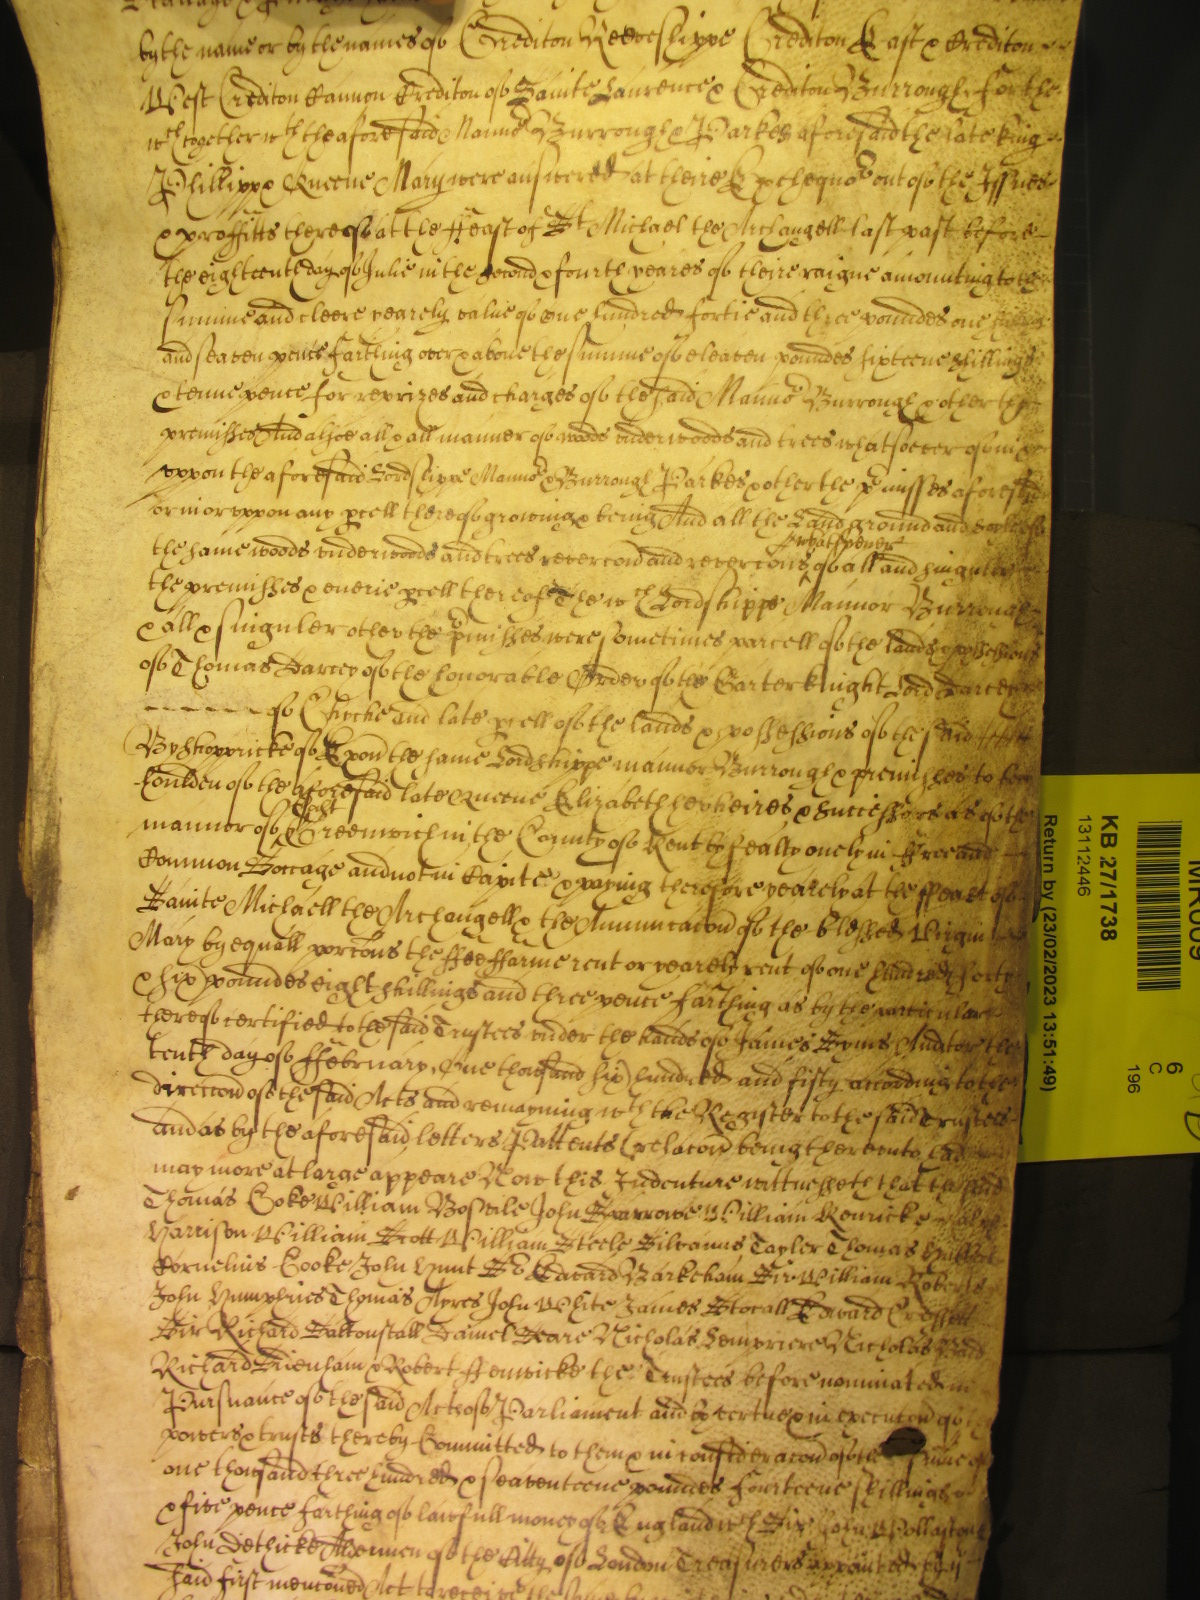 by the name or by the names of Crediton Reeveshippe Crediton East & Crediton
West Crediton Cannon Crediton of Sainte Laurence & Crediton Burrough for the
wch together wth the aforesaid Mannor Burrough & Parkes aforesaid the late king
Phillipp & Queene Mary were answered at theire Exchequor out of the Issues
& proffitts thereof at the ffeast of St Michael the Archangell last past before
the eighteenth day of Julie in the second & fourth yeares of theire raigne amounting to the
summe and cleere yearely value of one hundred fortie and three poundes one shilling
and seaven pence farthing over & above the summe of eleaven poundes sixteene shillings
& tenne pence for reprizes and charges of the said Mannor Burrough & other the
premisses And alsoe all & all manner of woods underwoods and trees whatsoever of in &
uppon the aforesaid Lordshippe Mannor & Burrough Parkes & other the pmisses aforesaid
or in or uppon any pcell thereof growing & being And all the Land ground and soyle of
the same woods underwoods and trees revercon and revercons whatsoever of all and singuler
the premisses & everie pcell thereof The wch Lordshippe Mannor Burrough
& all & singuler other the pmisses were sometimes parcell of the lands & possessions
of Thomas Darcey of the honorable Order of the Garter knight Lord Darcey
------ of Chiche and late pcell of the lands & possessions of the said
Byshopricke of Exon the same Lordshippe mannor Burrough & premisses to bee
houlden of the aforesaid late Queene Elizabeth her heires & successors as of the
mannor of East Greenwich in the County of Kent by fealty onely in ffree and
Common Soccage and not in Capite & paying therefore yearely at the ffeast of
Sainte Michaell the Archangell & the Annunciacon of the blessed Virgin
Mary by equall porcons the ffee ffarme rent or yearely rent of one hundred forty
& six poundes eight shillings and three pence farthing as by the particular
thereof certified to the said Trustees under the hands of James Syms Auditor the
tenth day of ffebruary One thousand six hundred and fifty according to the
direccon of the said Acts and remayning wth the Register to the said Trustees
and as by the aforesaid letters Pattents (relacon being thereunto had
may more at large appeare Now this Indenture wittnesseth that the said
Thomas Coke William Bosvile John Sparrowe William Kenricke Ralph
Harrison William Scott William Steele Silvanus Tayler Thomas Hubbert
Cornelius Cooke John Hunt Sr Edward Barkeham Sir William Roberts
John Humphries Thomas Ayres John White James Stocall Edward Cressett
Sir Richard Saltonstall Daniel Searle Nicholas Lempriere Nicholas Bond
Richard Sydenham & Robert ffenwicke the Trustees before nominated in
Pursuance of the said Acts of Parliament and by vertue & in execucon of the
powers & trusts thereby Committed to them & in consideracon of the summe of
one thousand three hundred & seaventeene poundes fourteene shillings
& five pence farthing of lawfull money of England wch Sir John Wollaston
John Dethicke Aldermen of the Citty of London Treasurers appointed by the
said first menconed Act to receive the
KB 27/1738
13112446
Return by (23/02/2023 13:51:49)
6
C
196